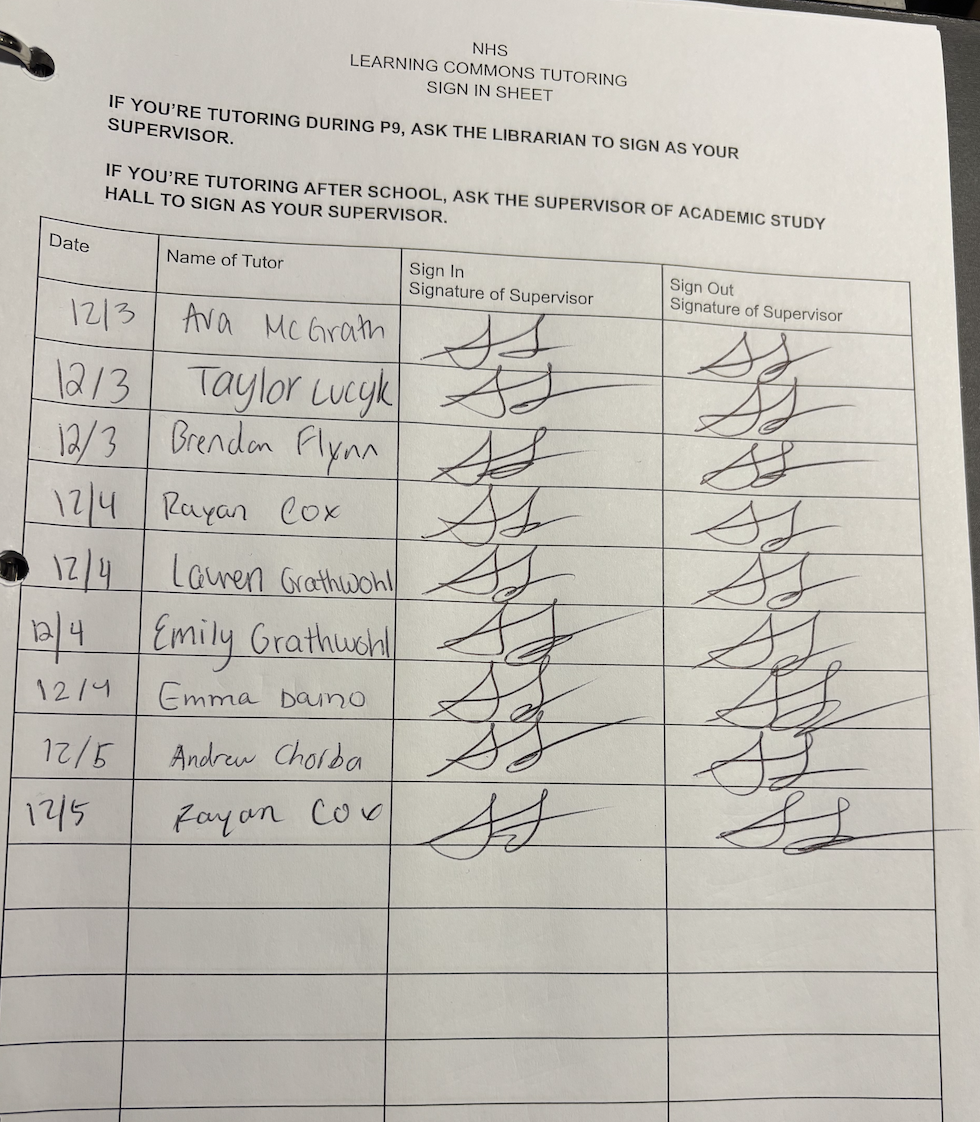 NHS
LEARNING COMMONS TUTORING
SIGN IN SHEET
IF YOU'RE TUTORING DURING P9, ASK THE LIBRARIAN TO SIGN AS YOUR
SUPERVISOR.
IF YOU'RE TUTORING AFTER SCHOOL, ASK THE SUPERVISOR OF ACADEMIC STUDY
HALL TO SIGN AS YOUR SUPERVISOR.
Date Name of Tutor Sign In Sign Out
Signature of Supervisor Signature of Supervisor
12/3 Ava McGrath
12/3 Taylor Lucyk
12/3 Brendan Flynn
12/4 Rayan Cox
12/4 Lauren Grathwohl
12/4 Emily Grathwohl
12/4 Emma Daino
12/5 Andrew Chorba
12/5 Rayan Cox